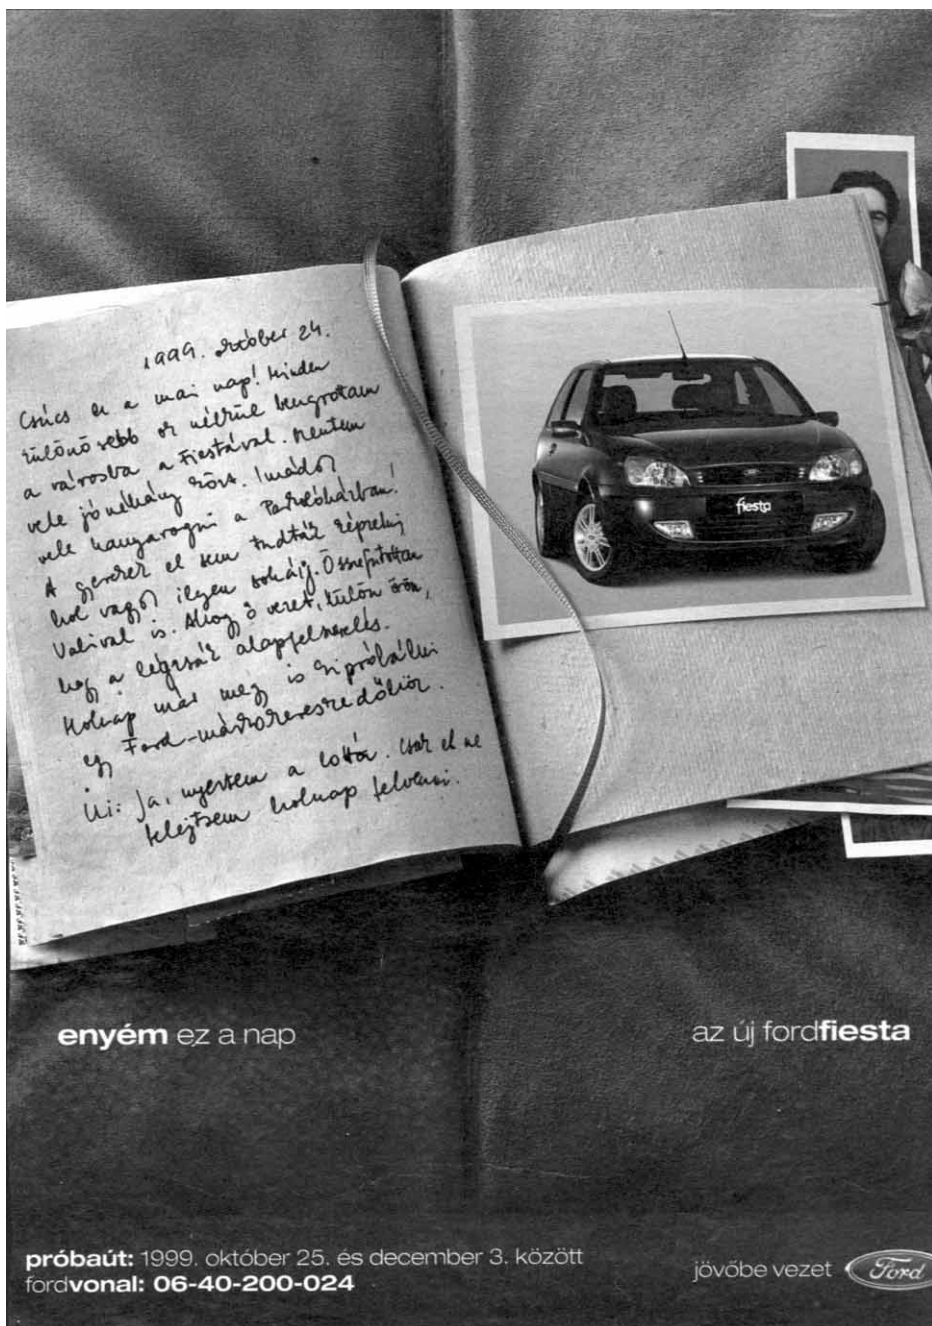 1999. október 24.
Csúcs ez a mai nap! Minden
különösebb ok nélkül beugrottam
a városba a Fiestával. Mentem
vele jó néhány kört. Imádok
vele kanyarogni a Parkolóházban!
A gyerekek el sem tudták képzelni
hol vagyok ilyen sokáig. Összefutottam
Valival is. Ahogy ő vezet, külön öröm,
hogy a légzsák alapfelszerelés.
Holnap már megy is kipróbálni
egy Ford-márkakereskedőhöz.
Ui: Ja, nyertem a lottón. Csak el ne
felejtsem holnap felvenni.
fiesta
enyém ez a nap
az új fordfiesta
próbaút: 1999. október 25. és december 3. között
fordvonal: 06-40-200-024
jövőbe vezet Ford